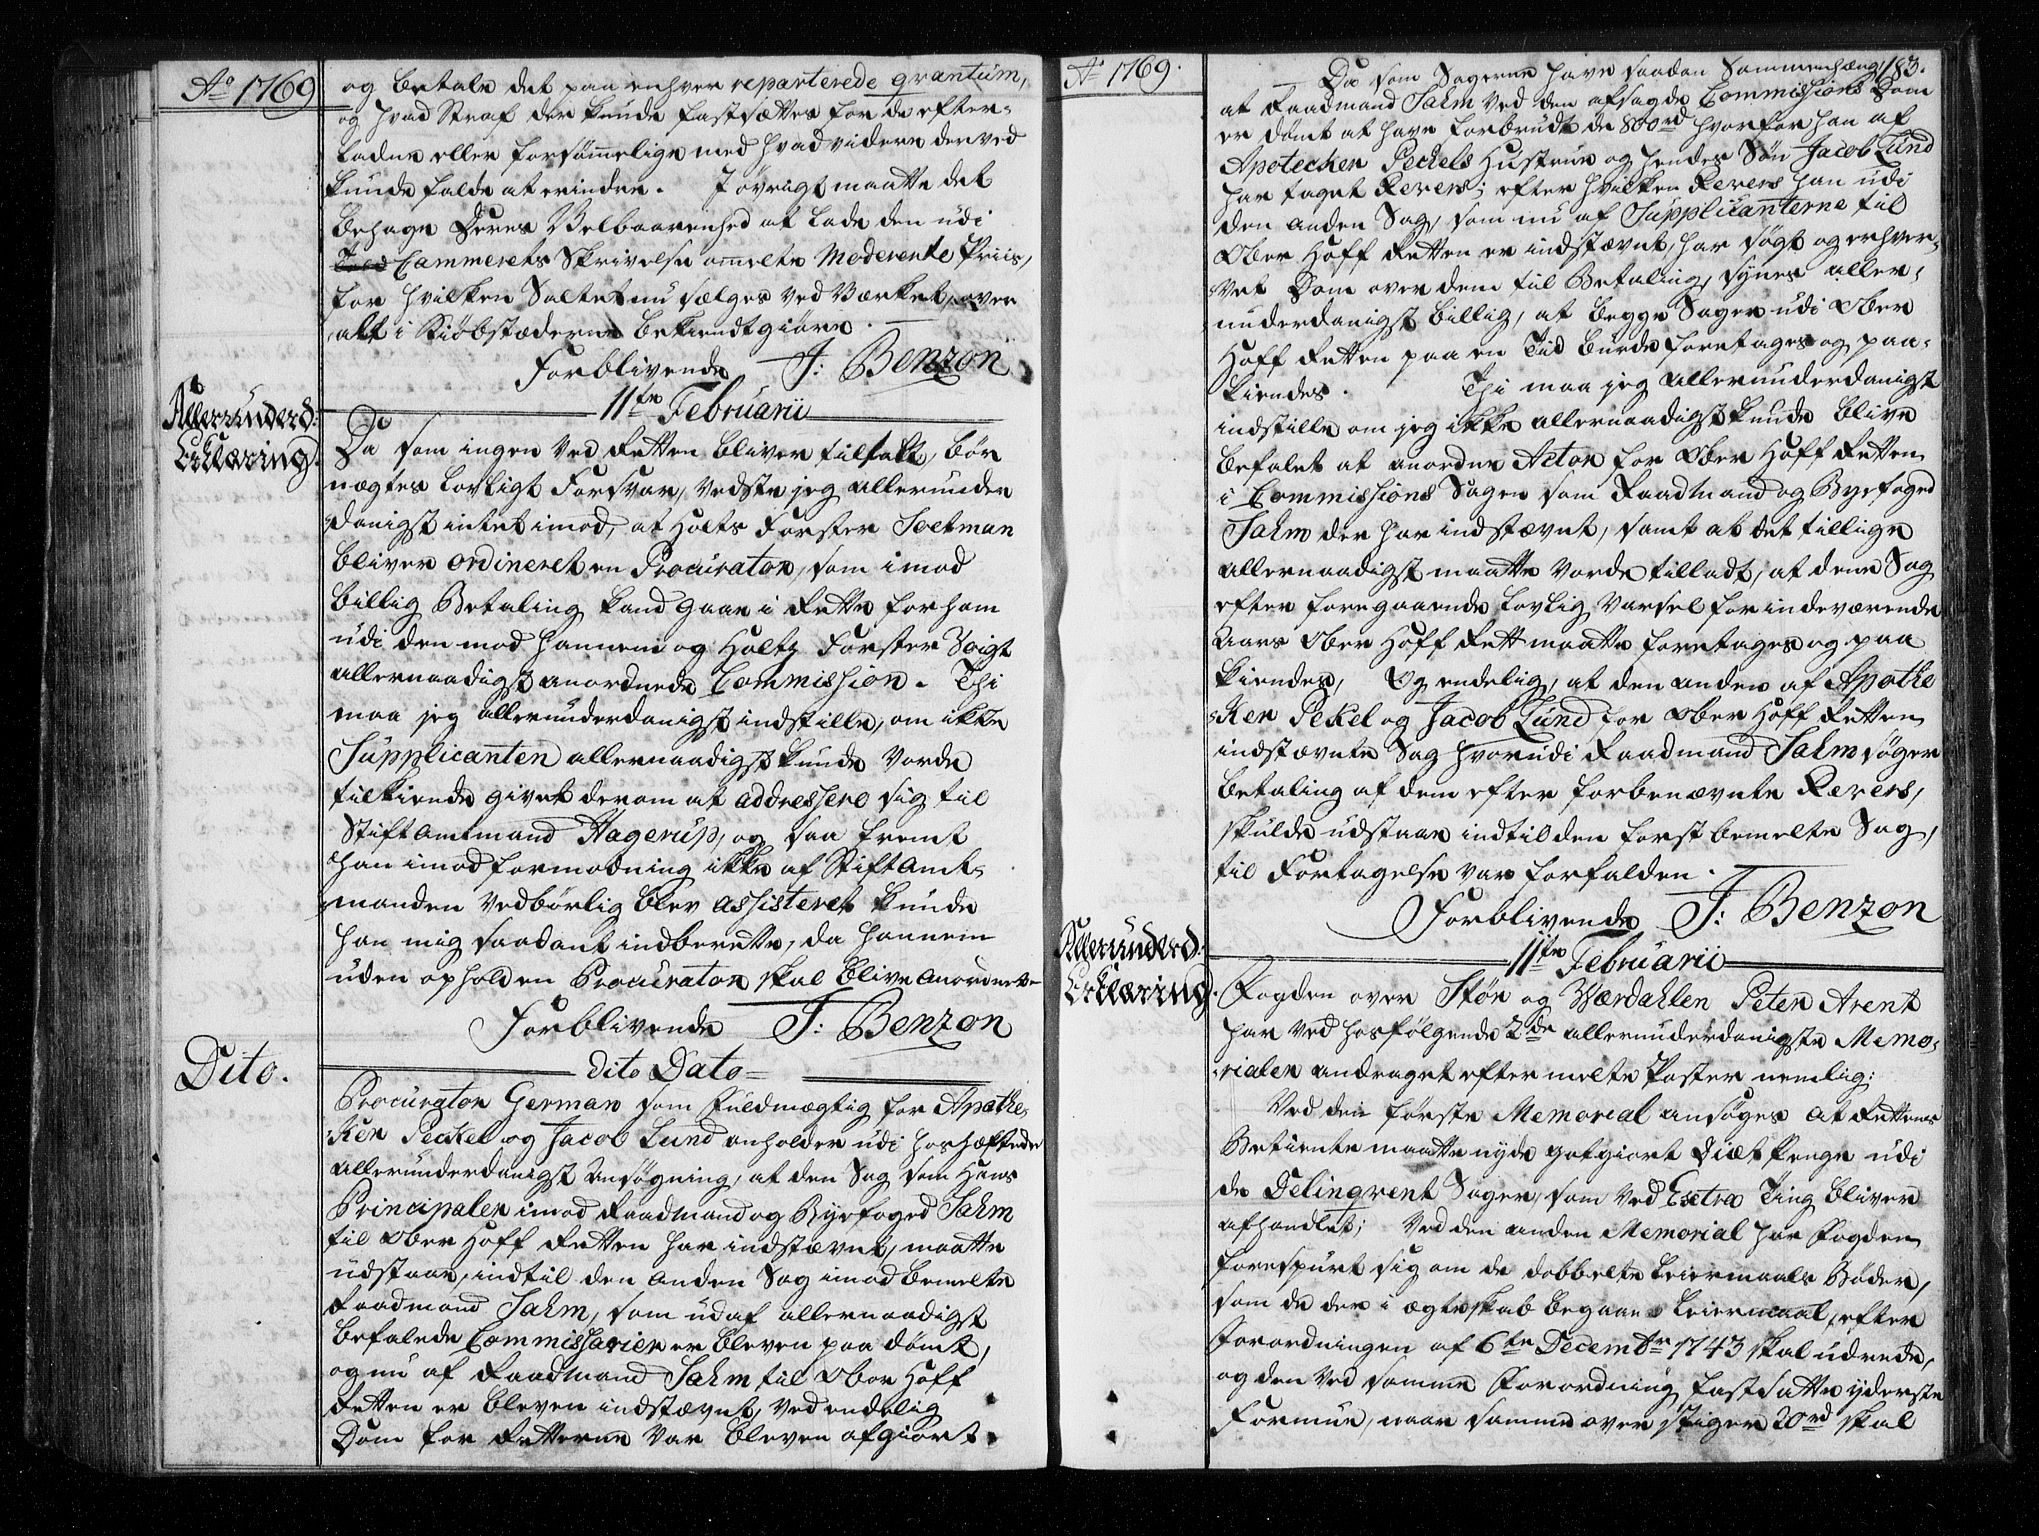 Ao 1769
og betale det paa enhver reparterede qvantum,
og hvad Straf der kunde fastsættes for de efter-
ladne eller forsømmelige med hvad videre derved
kunde falde at erindre. I øvrigt maatte det
behage Deres Velbaarenhed at lade den udi
Cammerets Skrivelse omelte Moderente Priis,
for hvilken Saltet nu sælges ved Værket, over
alt i Kiøbstæderne bekiendtgiøre.
Forblivende J: Benzon
11te Februarii
Allerunderd:
Erklæring.
Da som ingen ved Retten bliver tiltalt, bør
nægtes lovligt Forsvar, vedste jeg allerunder
danigst intet imod, at Holts Forster Soetman
bliver ordineret en Procurator, som imod
billig Betaling kand gaae i Rette for ham
udi den mod hannem og Holtz Forster Voigt
allernaadigst anordnede Commission. Thi
maa jeg allerunderdanigst indstille, om ikke
Supplicanten allernaadigst kunde vorde
tilkiende givet derom at addressere sig til
Stiftamtmand Hagerup, og saa fremt
han imod formodning ikke af Stiftamt-
manden vedbørlig blev assisteret kunde
han mig saadant indberette, da hannem
uden ophold en Procurator skal blive anordnet
Forblivende J: Benzon
dito Dato
Dito.
Procurator German som Fuldmægtig for Apothe-
ker Peckel og Jacob Lund anholder udi hoshæftede
allerunderdanigst Ansøgning, at den Sag som Hans
Principaler imod Raadmand og Byefoged Jahm
til Ober Hoff Retten har indstævnt, maatte
udstaae, indtil den anden Sag imod bemelte
Raadmand Jahm, som udaf allernaadigst
befalede Commissarier er bleven paa dømt,
og nu af Raadmand Jahm til Ober Hoff
Retten er bleven indstævnt, ved endelig
Dom for Retterne var bleven afgiort.
Ao 1769.
183.
Da som Sagerne have saadan Sammenhæng,
at Raadmand Jahm ved den afsagde Commissions Dom
er dømt at have forbrudt de 800rd hvorfor han af
Apotecker Peckels Hustrue og hendes Søn Jacob Lund
har taget Revers; efter hvilken Revers han udi
den anden Sag, som nu af Supplicanterne til
Ober Hoff Retten er indstævnt, har søgt og erhver-
vet Dom over dem til Betaling, synes aller-
underdanigst billig, at begge Sager udi Ober
Hoff Retten paa en Tiid burde foretages og paa-
kiendes. Thi maa jeg allerunderdanigst
indstille om jeg ikke allernaadigst kunde blive
befalet at anordne Actor for Ober Hoff Retten
i Commissions Sagen som Raadmand og Byefoged
Jahm der har indstævnt, samt at det tillige
allernaadigst maatte vorde tilladt, at denne Sag
efter foregaaende lovlig Varsel for indeværende
Aars Ober Hoff Rett maatte foretages og paa
kiendes, Og endelig, at den anden af Apothe
ker Pekel og Jacob Lund for Ober Hoff Retten
indstævnte Sag hvorudi Raadmand Jahm søger
betaling af dem efter forbenævnte Revers,
skulde udstaae indtil den først bemelte Sag,
til Fortagelse var forfalden.
Forblivende J: Benzon
11te Februarii
Allerunderd:
Erklæring.
Fogden over Stør og Værdahlen Peter Arent
har ved hosfølgende 2de allerunderdanigste Memo-
rialer andraget efter melte Poster nemlig:
Ved den første Memorial ansøges at Rettens
Betiente maatte nyde gotgiort Diæt Penge udi
de Delinqvent Sager, som ved Extra Ting bliver
afhandlet; Ved den anden Memorial har Fogden
forespurt sig om de dobbelte Leiermaals Bøder,
som de der i ægteskab begaaer Leiermaal, efter
Forordningen af 6te Decembr 1743 skal udrede,
og den ved samme Forordning fastsatte yderste
Formue, naar samme over stiger 20rd skal